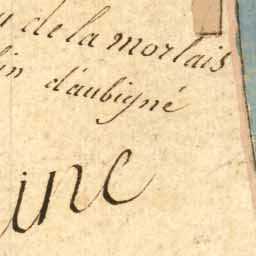 de la morlais
lin d'aubigné
ine